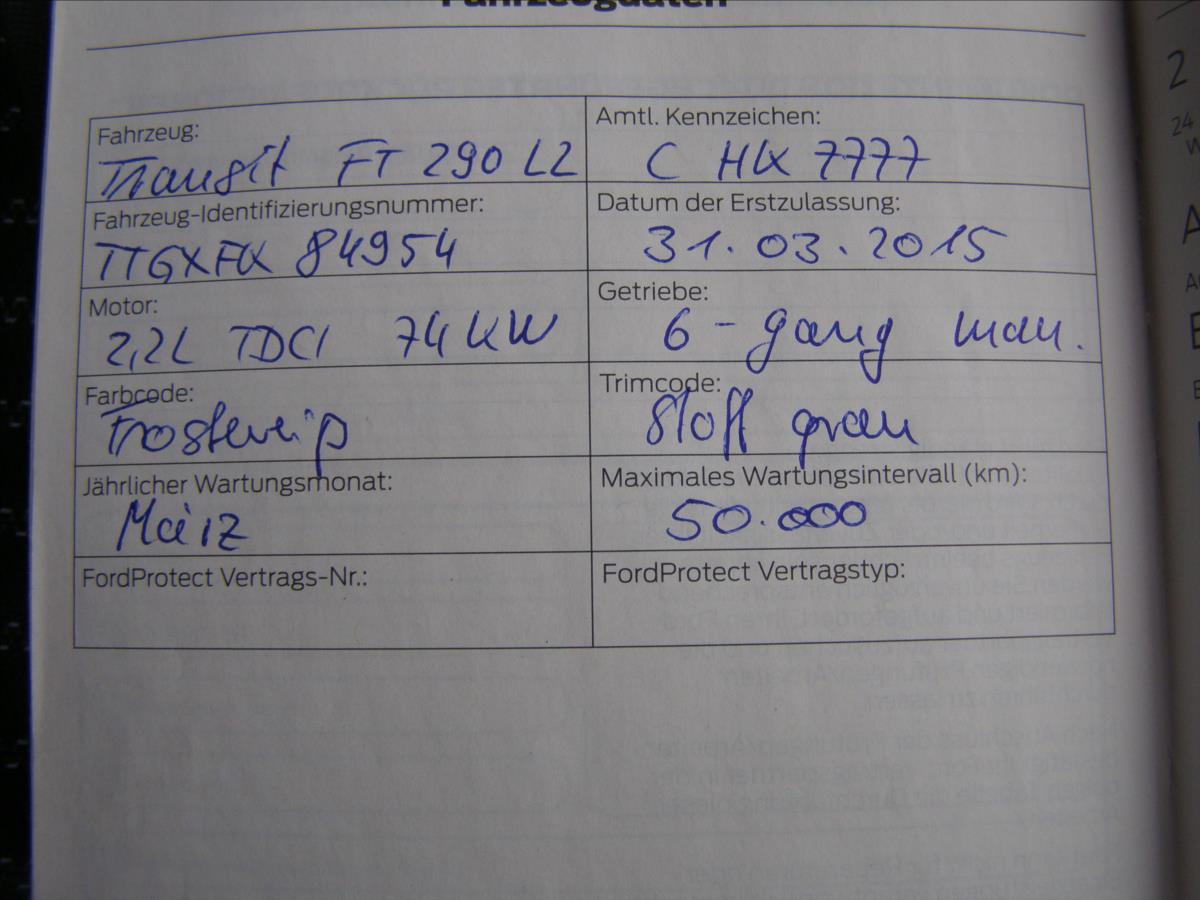 Fahrzeugdaten
Fahrzeug:
Transit FT 290 L2
Amtl. Kennzeichen:
C HK 7777
Fahrzeug-Identifizierungsnummer:
TTGXFK 84954
Datum der Erstzulassung:
31.03.2015
Motor:
2,2L TDCI 74 KW
Getriebe:
6-gang man.
Farbcode:
Frostweiß
Trimcode:
Stoff grau
Jährlicher Wartungsmonat:
März
Maximales Wartungsintervall (km):
50.000
FordProtect Vertrags-Nr.:
FordProtect Vertragstyp:
2
24